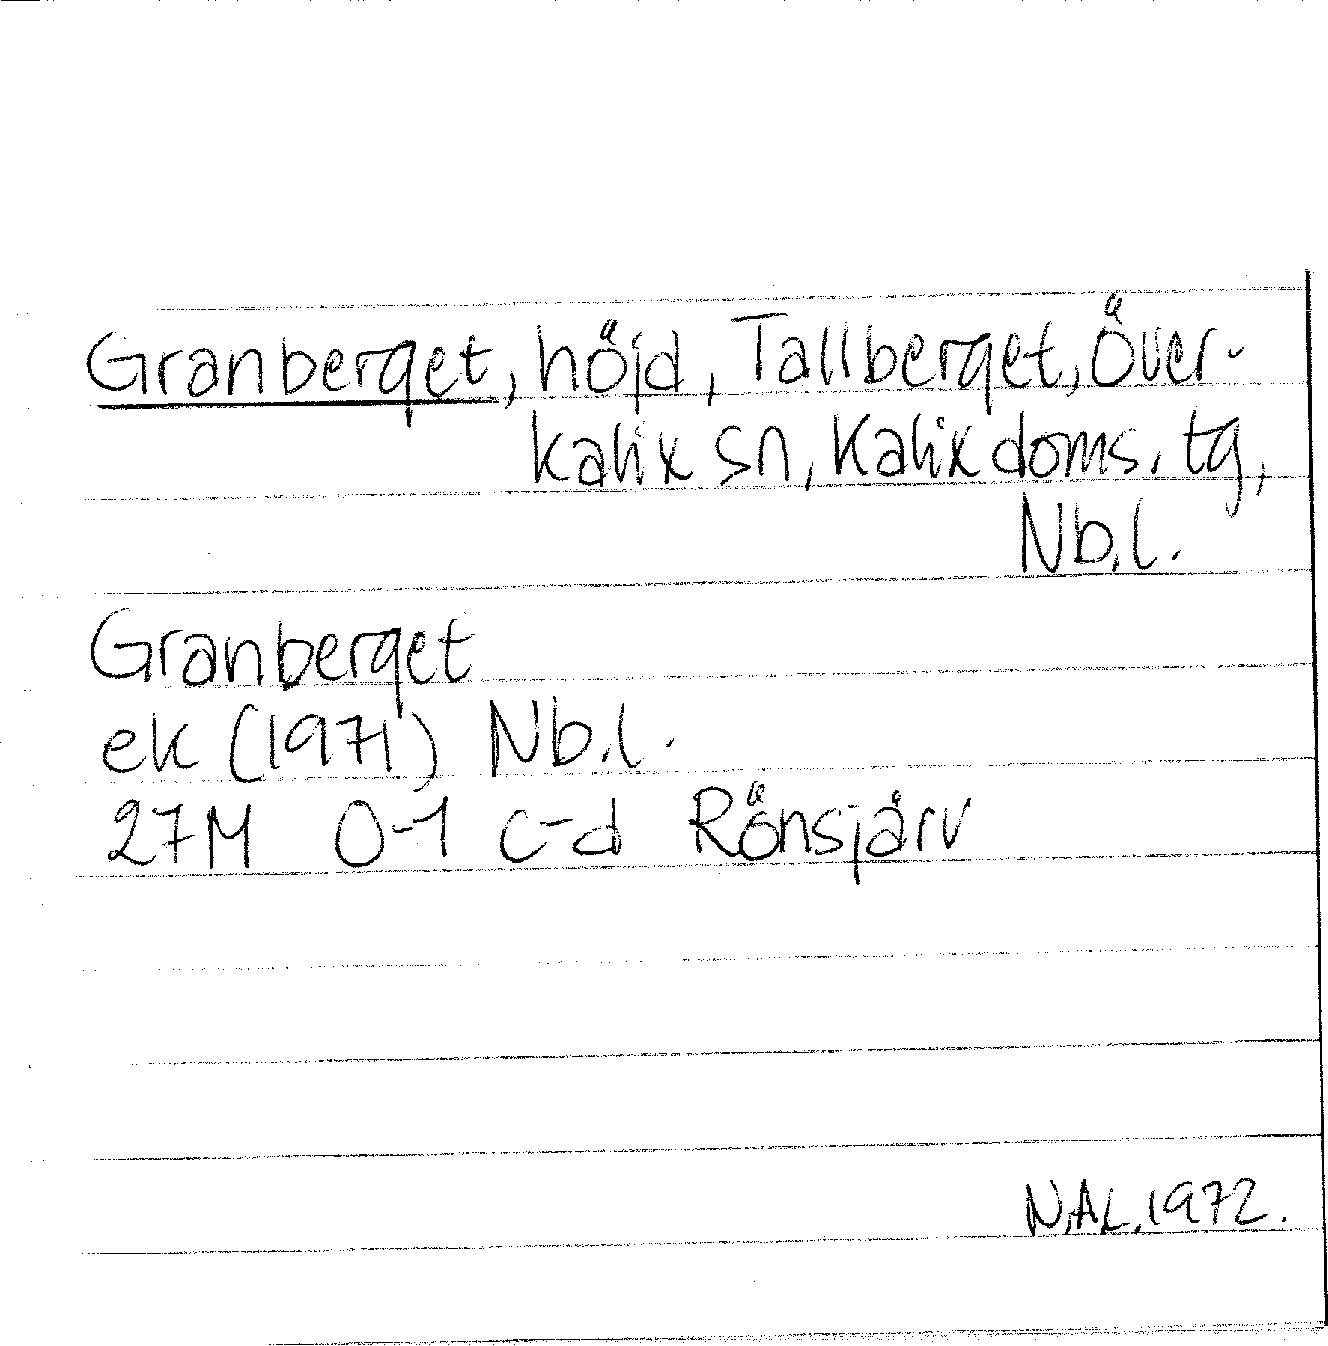 Granberget, höjd, Tallberget, Över-
kalix sn, Kalix doms. tg,
Nb.l.
Granberget
ek (1971) Nb.l.
27M 0-1 c-d Rönsjärv
N.A.L. 1972.